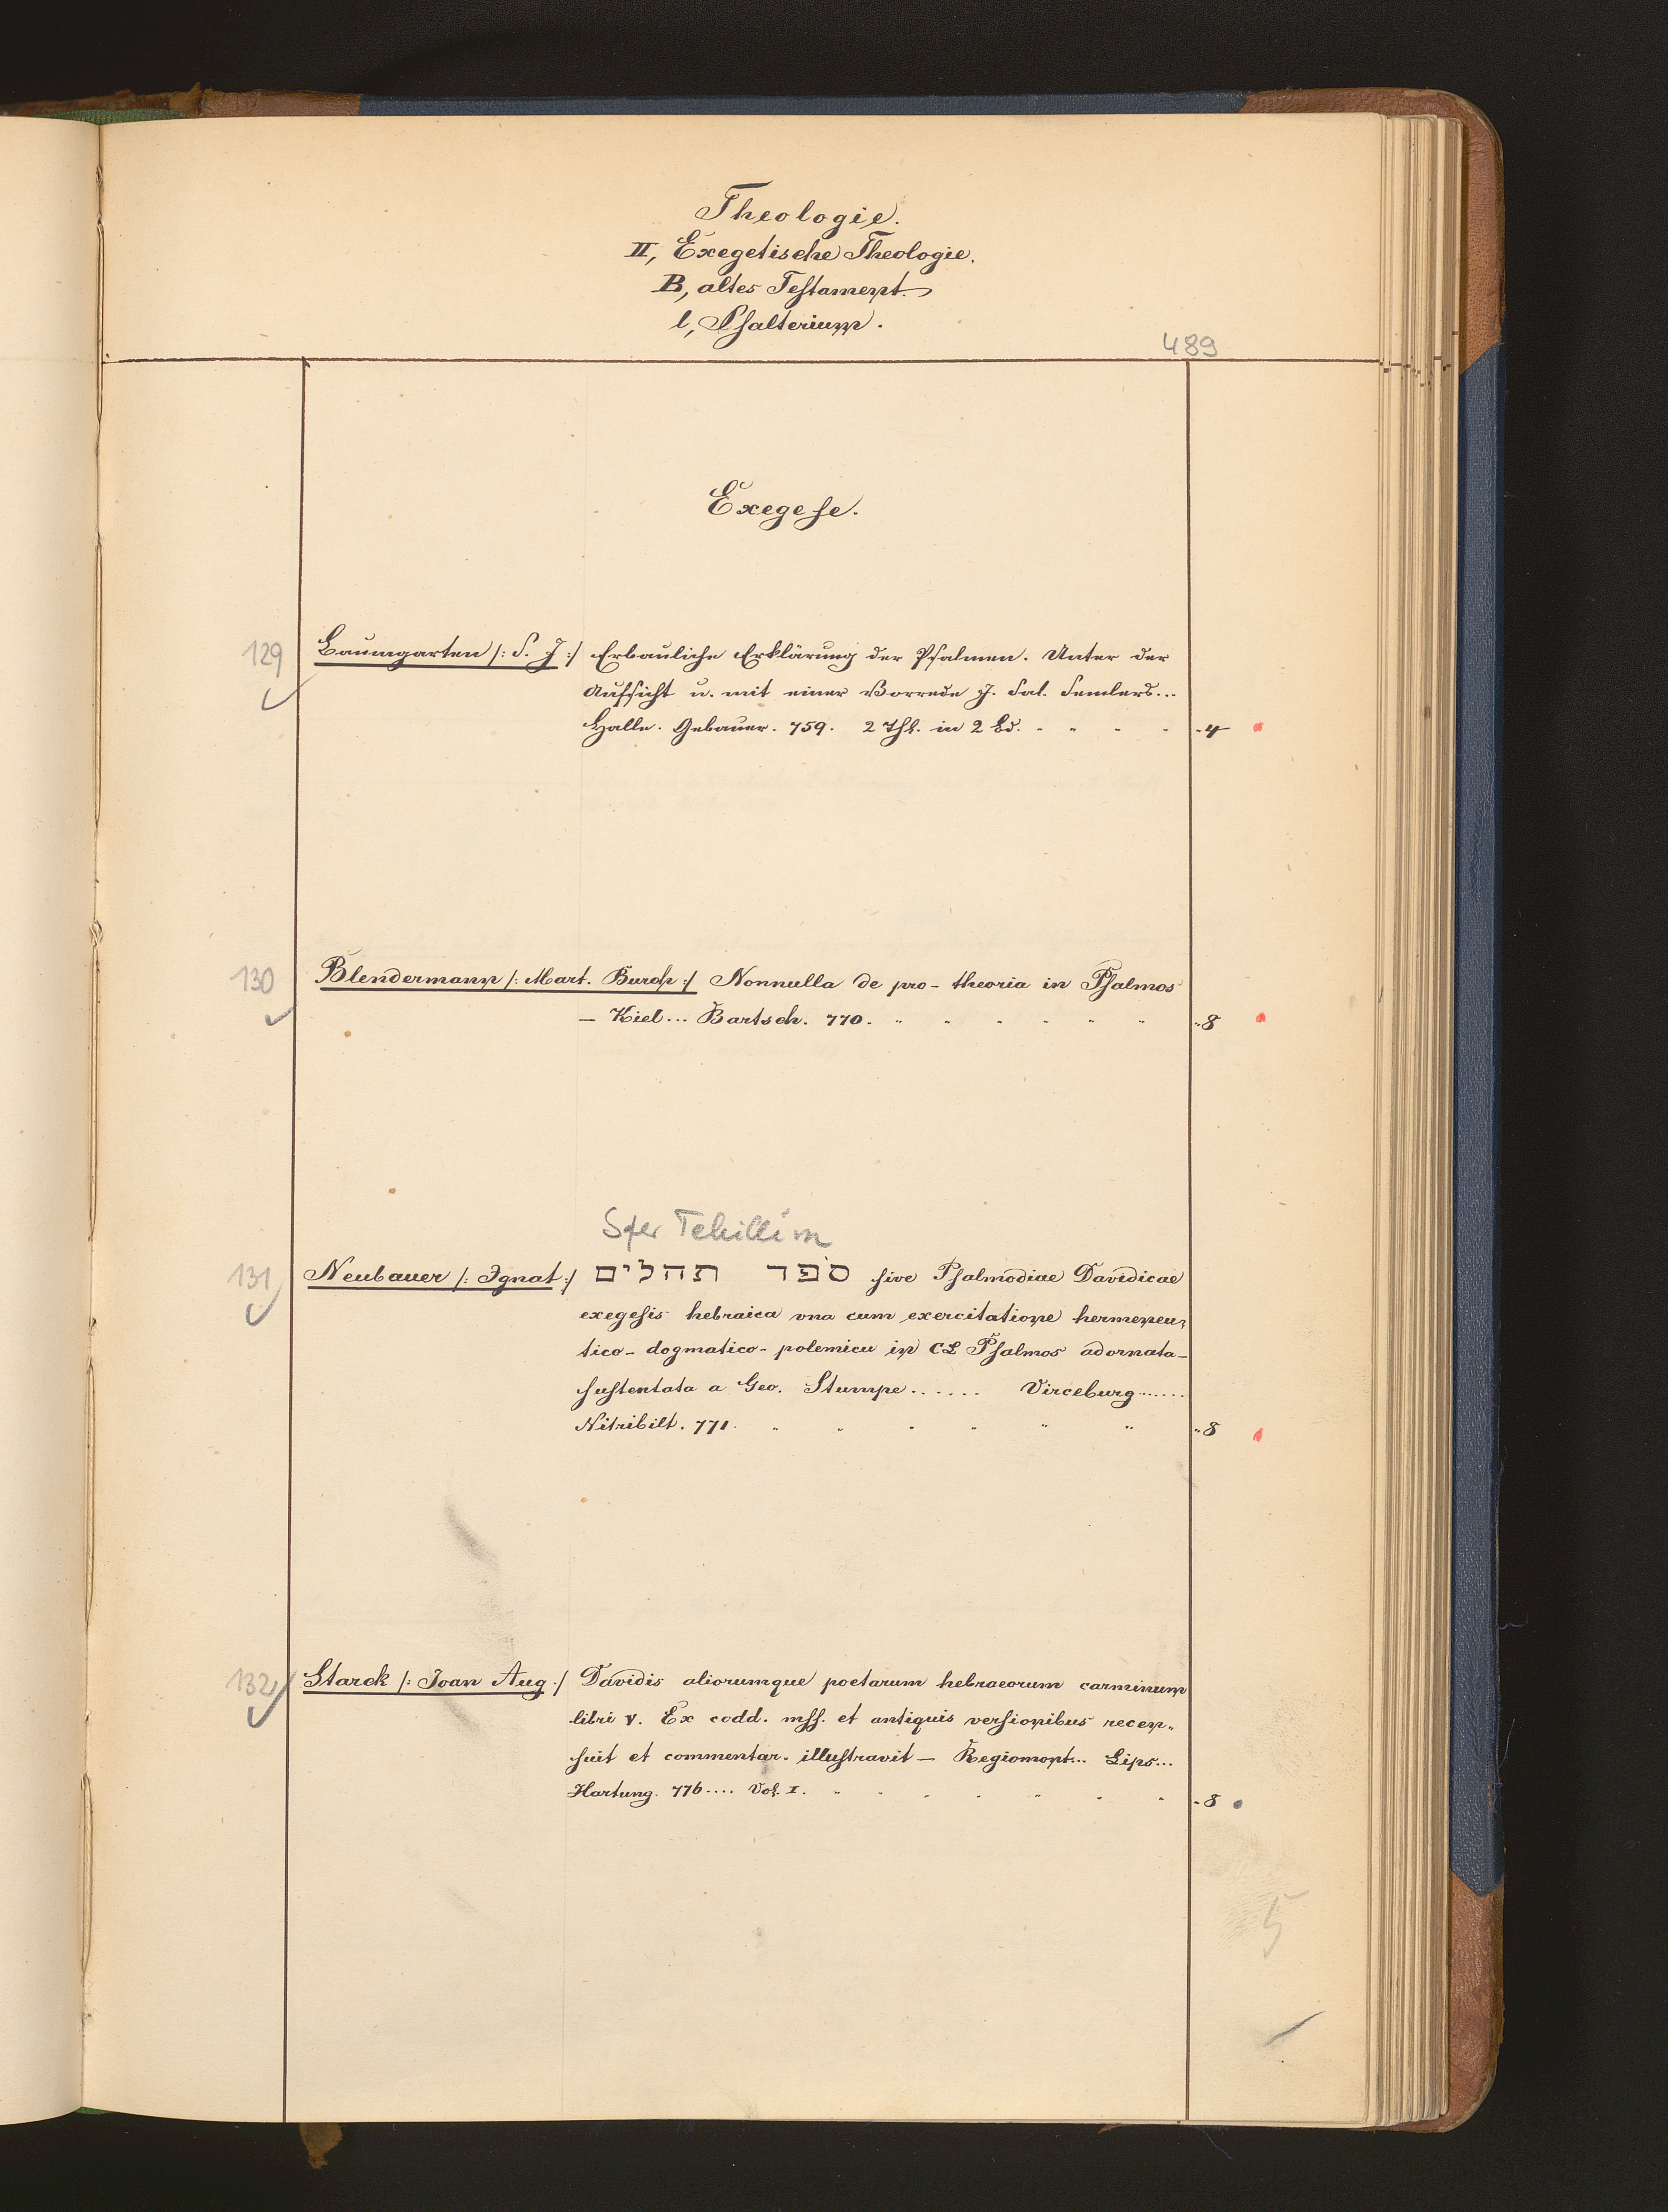 Theologie.
II, Exegetische Theologie.
B, altes Testament.
l, Psalterium.
489
Exegese.
129 Baumgarten /: S. J :/ Erbauliche Erklärung der Psalmen. Unter der
Aufsicht u. mit einer Vorrede J. Sal. Semlers...
Halle. Gebauer. 759. 2 Thl. in 2 Bd. - " - - -4
130 Blendermann /: Mart. Burch :/ Nonnulla de pro- theoria in Psalmos
— Kiel... Bartsch. 770. " " " " " " "8
Sfer Tehillim
131 Neubauer /: Ignat :/ ספר תהלים sive Psalmodiae Davidicae
exegesis hebraica vna cum exercitatione hermeneu-
tico- dogmatico- polemicu in CL Psalmos adornata-
sustentata a Geo. Stumpe...... Virceburg......
Nitribilt. 771. " " " " " " "8
132 Starck /: Joan Aug :/ Davidis aliorumque poetarum hebraeorum carminum
libri V. Ex codd. mss. et antiquis versionibus recen-
suit et commentar. illustravit — Regiomont... Lips...
Hartung. 776.... Vol. I. " " " " " " " -8
5